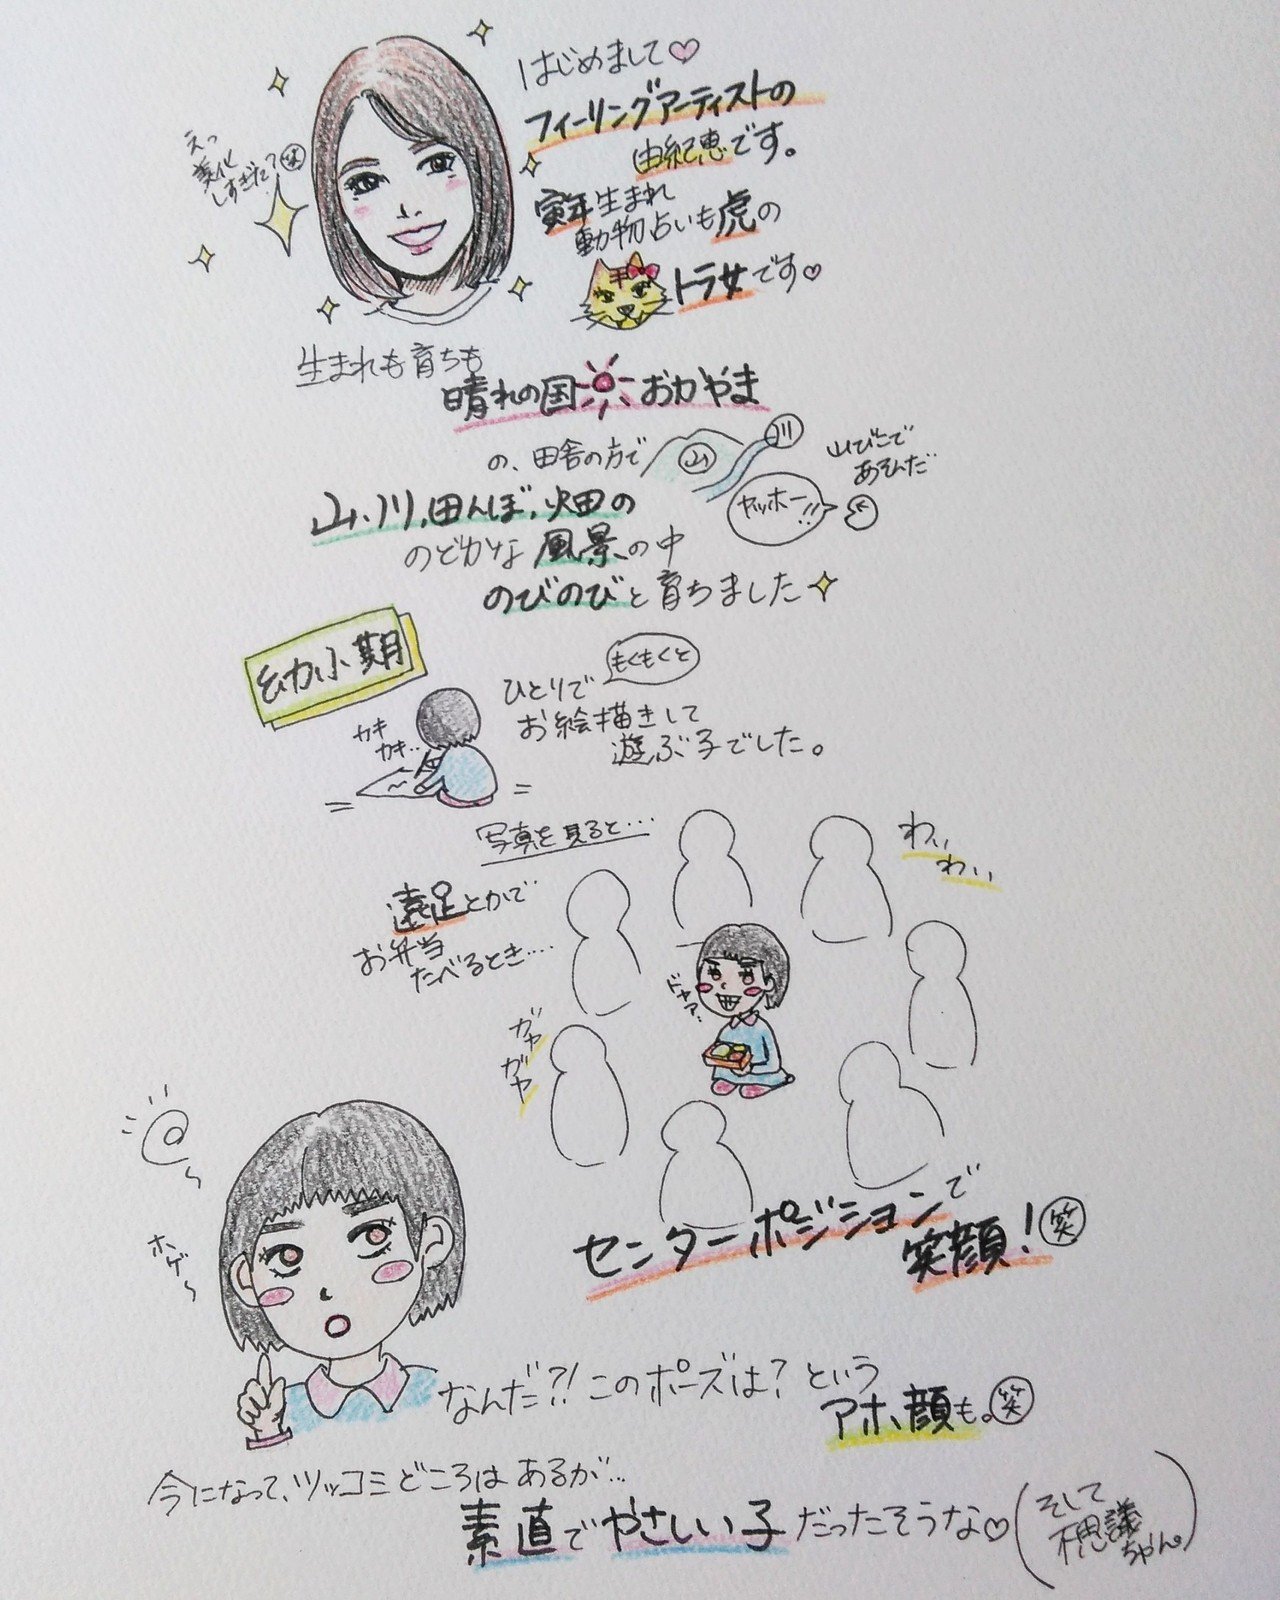 はじめまして♡
フィーリングアーティストの
由紀恵です。
えっ
美化
しすぎた?笑
寅年生まれ
動物占いも虎の
トラ女です♡
生まれも育ちも
晴れの国 おかやま
の、田舎の方で
山
川
山びこで
あそんだ
ヤッホー!!
山、川、田んぼ、畑の
のどかな風景の中
のびのびと育ちました
幼少期
もくもくと
ひとりで
お絵描きして
遊ぶ子でした。
カキ
カキ…
写真を見ると…
わぃ
わぃ
遠足とかで
お弁当
たべるとき…
ジャマ…
ガヤ
ガヤ
センターポジションで
笑顔!笑
ホゲ〜
なんだ?!このポーズは?という
アホ顔も。笑
今になって、ツッコミどころはあるが…
素直でやさしい子だったそうな♡
(そして
不思議
ちゃん。)